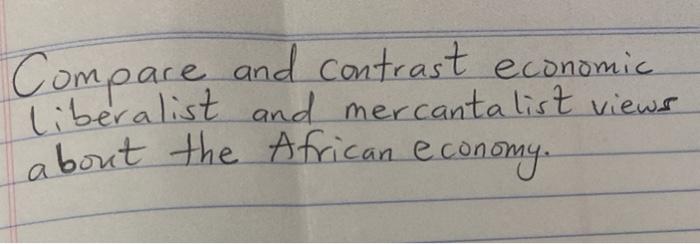 Compare and contrast economic
liberalist and mercantalist views
about the African economy.